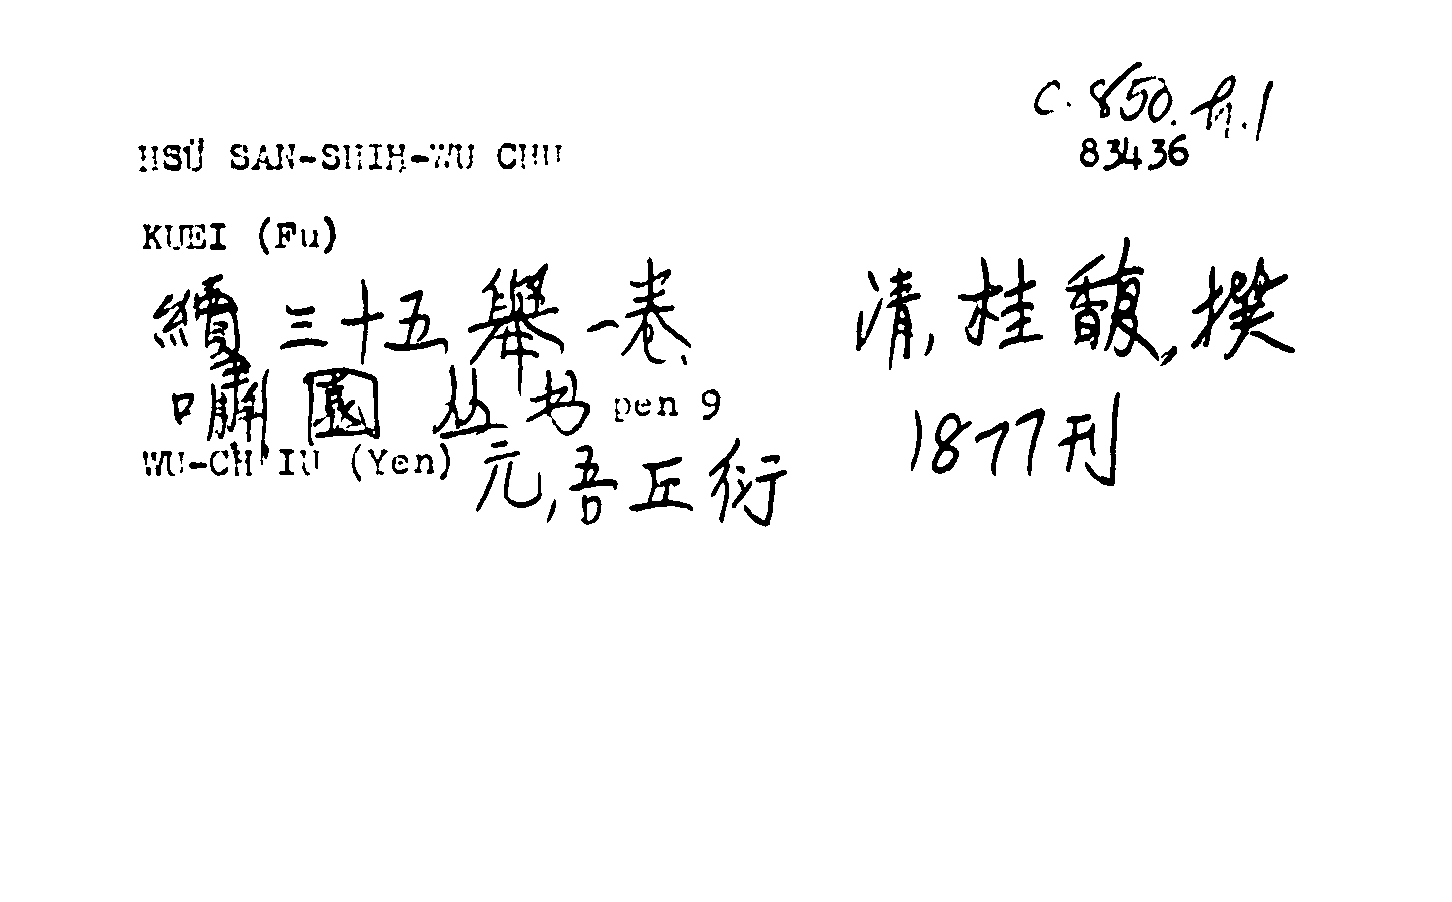 C. 850. h. 1
83436
HSÜ SAN-SHIH-WU CHU
KUEI (Fu)
續三十五舉一卷 清,桂馥,撰
嘯園丛书 pen 9 1877刊
WU-CH'IU (Yen) 元,吾丘衍